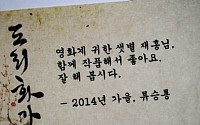 도리화가
영화계 귀한 샛별 재홍님,
함께 작품해서 좋아요.
잘 해 봅시다.
- 2014년 가을, 류승룡